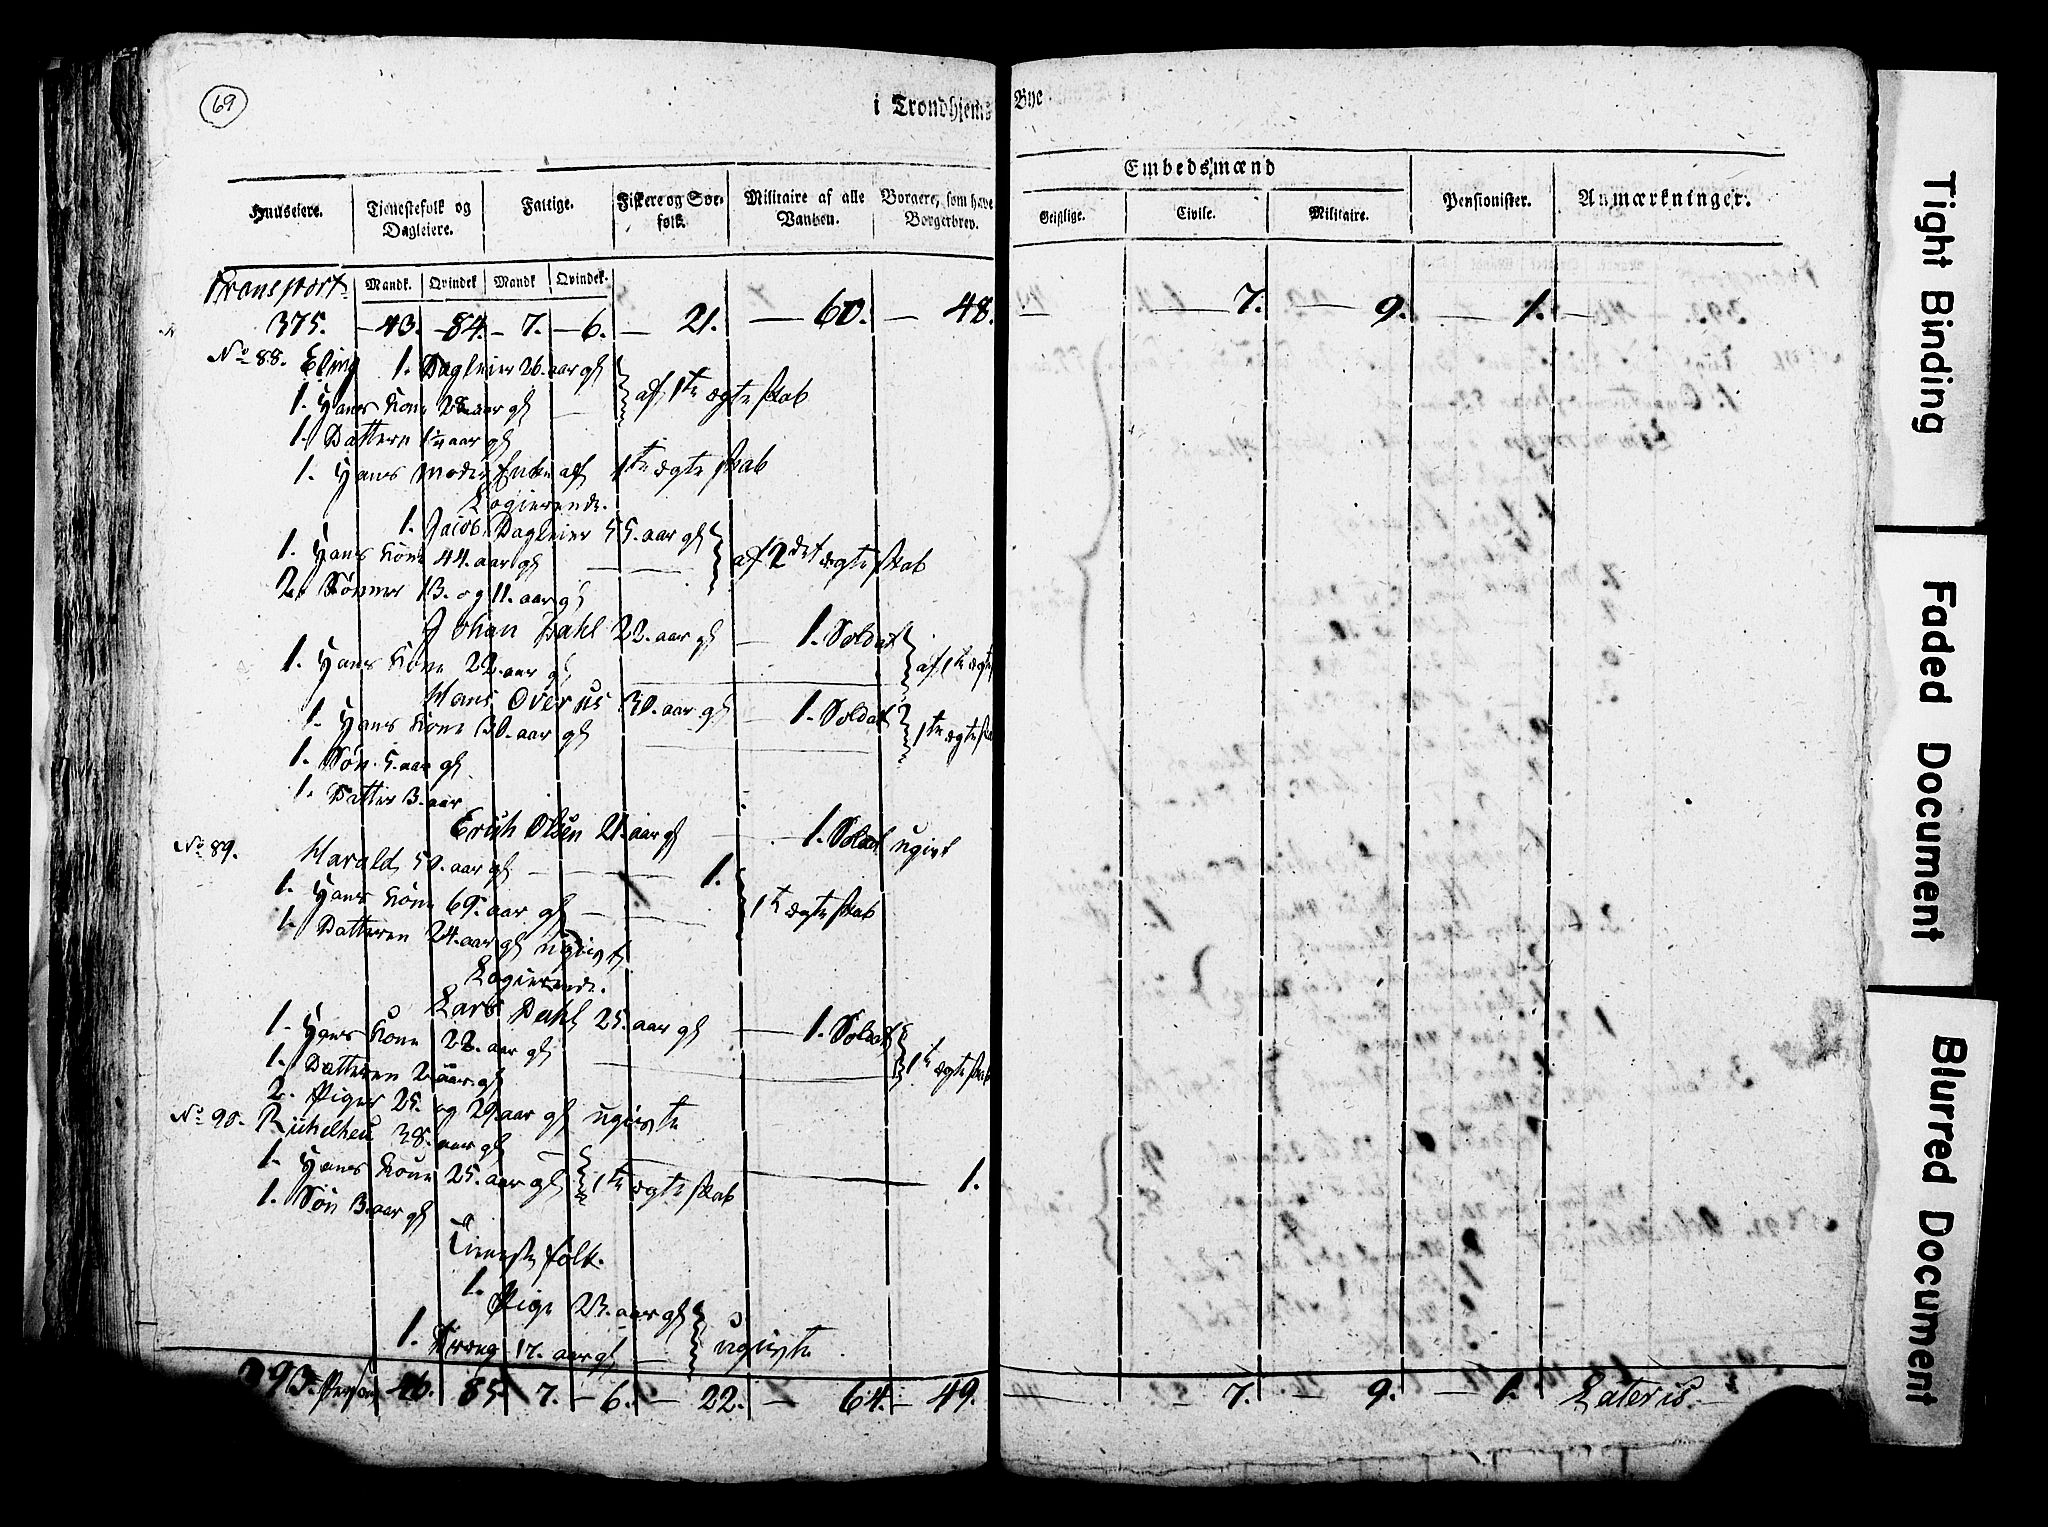 69
i Trondhjems Bye
Embedsmænd
Huuseiere.
Tienestefolk og Dagleiere.
Fattige.
Fiskere og Søefolk.
Militaire af alle Vaaben.
Borgere, som have Borgerbrev.
Geistlige.
Civile.
Militaire.
Pensionister.
Anmærkninger.
Transport
Mandk. Qvindek Mandk Qvindek.
375. — 43. — 84. — 7. — 6. — 21. — 60. — 48. — 7. — 9. — 1. —
No 88. Eling 1. Dagleier 26. aar gl
1. Hans Kone 28. aar gl — af 1te ægteskab
1. Datteren 1 1/2 aar gl
1. Hans moder Enke af 1te ægteskab
Logierende.
1. Jacob Dagleier 55. aar gl
1. Hans Kone 44. aar gl — af 2det ægteskab
2. Sønner 13. og 11. aar gl
Johan Dahl 22. aar gl — 1. Soldat
1. Hans Kone 22. aar gl — af 1te ægte
Hans Overaas 30. aar gl — 1. Soldat
1. Hans Kone 30. aar gl — 1te ægteska
1. Søn 5. aar gl
1. Datter 3. aar
Erich Olsen 21. aar gl — 1. Soldat ugivt
No 89. Harald 50. aar gl — 1.
1. Hans Kone 69. aar gl — 1te ægteskab
1. Datteren 24. aar gl ugivt
Logierende.
Lars Dahl 25. aar gl — 1. Soldat
1. Hans Kone 22. aar gl
1. Datteren 2. aar gl — 1te ægteskab
2. Piger 25. og 29. aar gl ugivte
No 90. Richelheu 38. aar gl —
1. Hans Kone 25. aar gl 1te ægteskab — 1.
1. Søn 3. aar gl
Tieneste folk.
1. Pige 23. aar gl
1. Dreng 17. aar gl — ugivte
393. Person 46. 85. 7. — 6. — 22. — 64. — 49. — 7. — 9. — 1. Lateris.
Tight Binding
Faded Document
Blurred Document